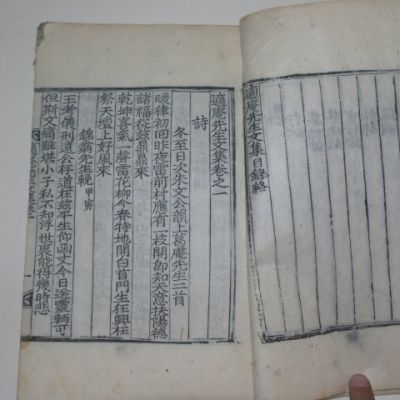 適庵先生文集目錄終
適庵先生文集卷之一
詩
冬至日次朱文公韻上葛庵先生二首
暖律初回昨夜雷前村應有一枝開即知天意扶陽德
諸福從玆鼎鼎來
乾坤喜氣一聲雷花柳今春特地開白首門生狂興在
祭天壇上好風來
錦翁先生輓甲寅
王考儀刑遠公存道在玆平生仰函丈今日送靈輀可
但斯文痛難堪小子私不知浮世裏能得幾時悲